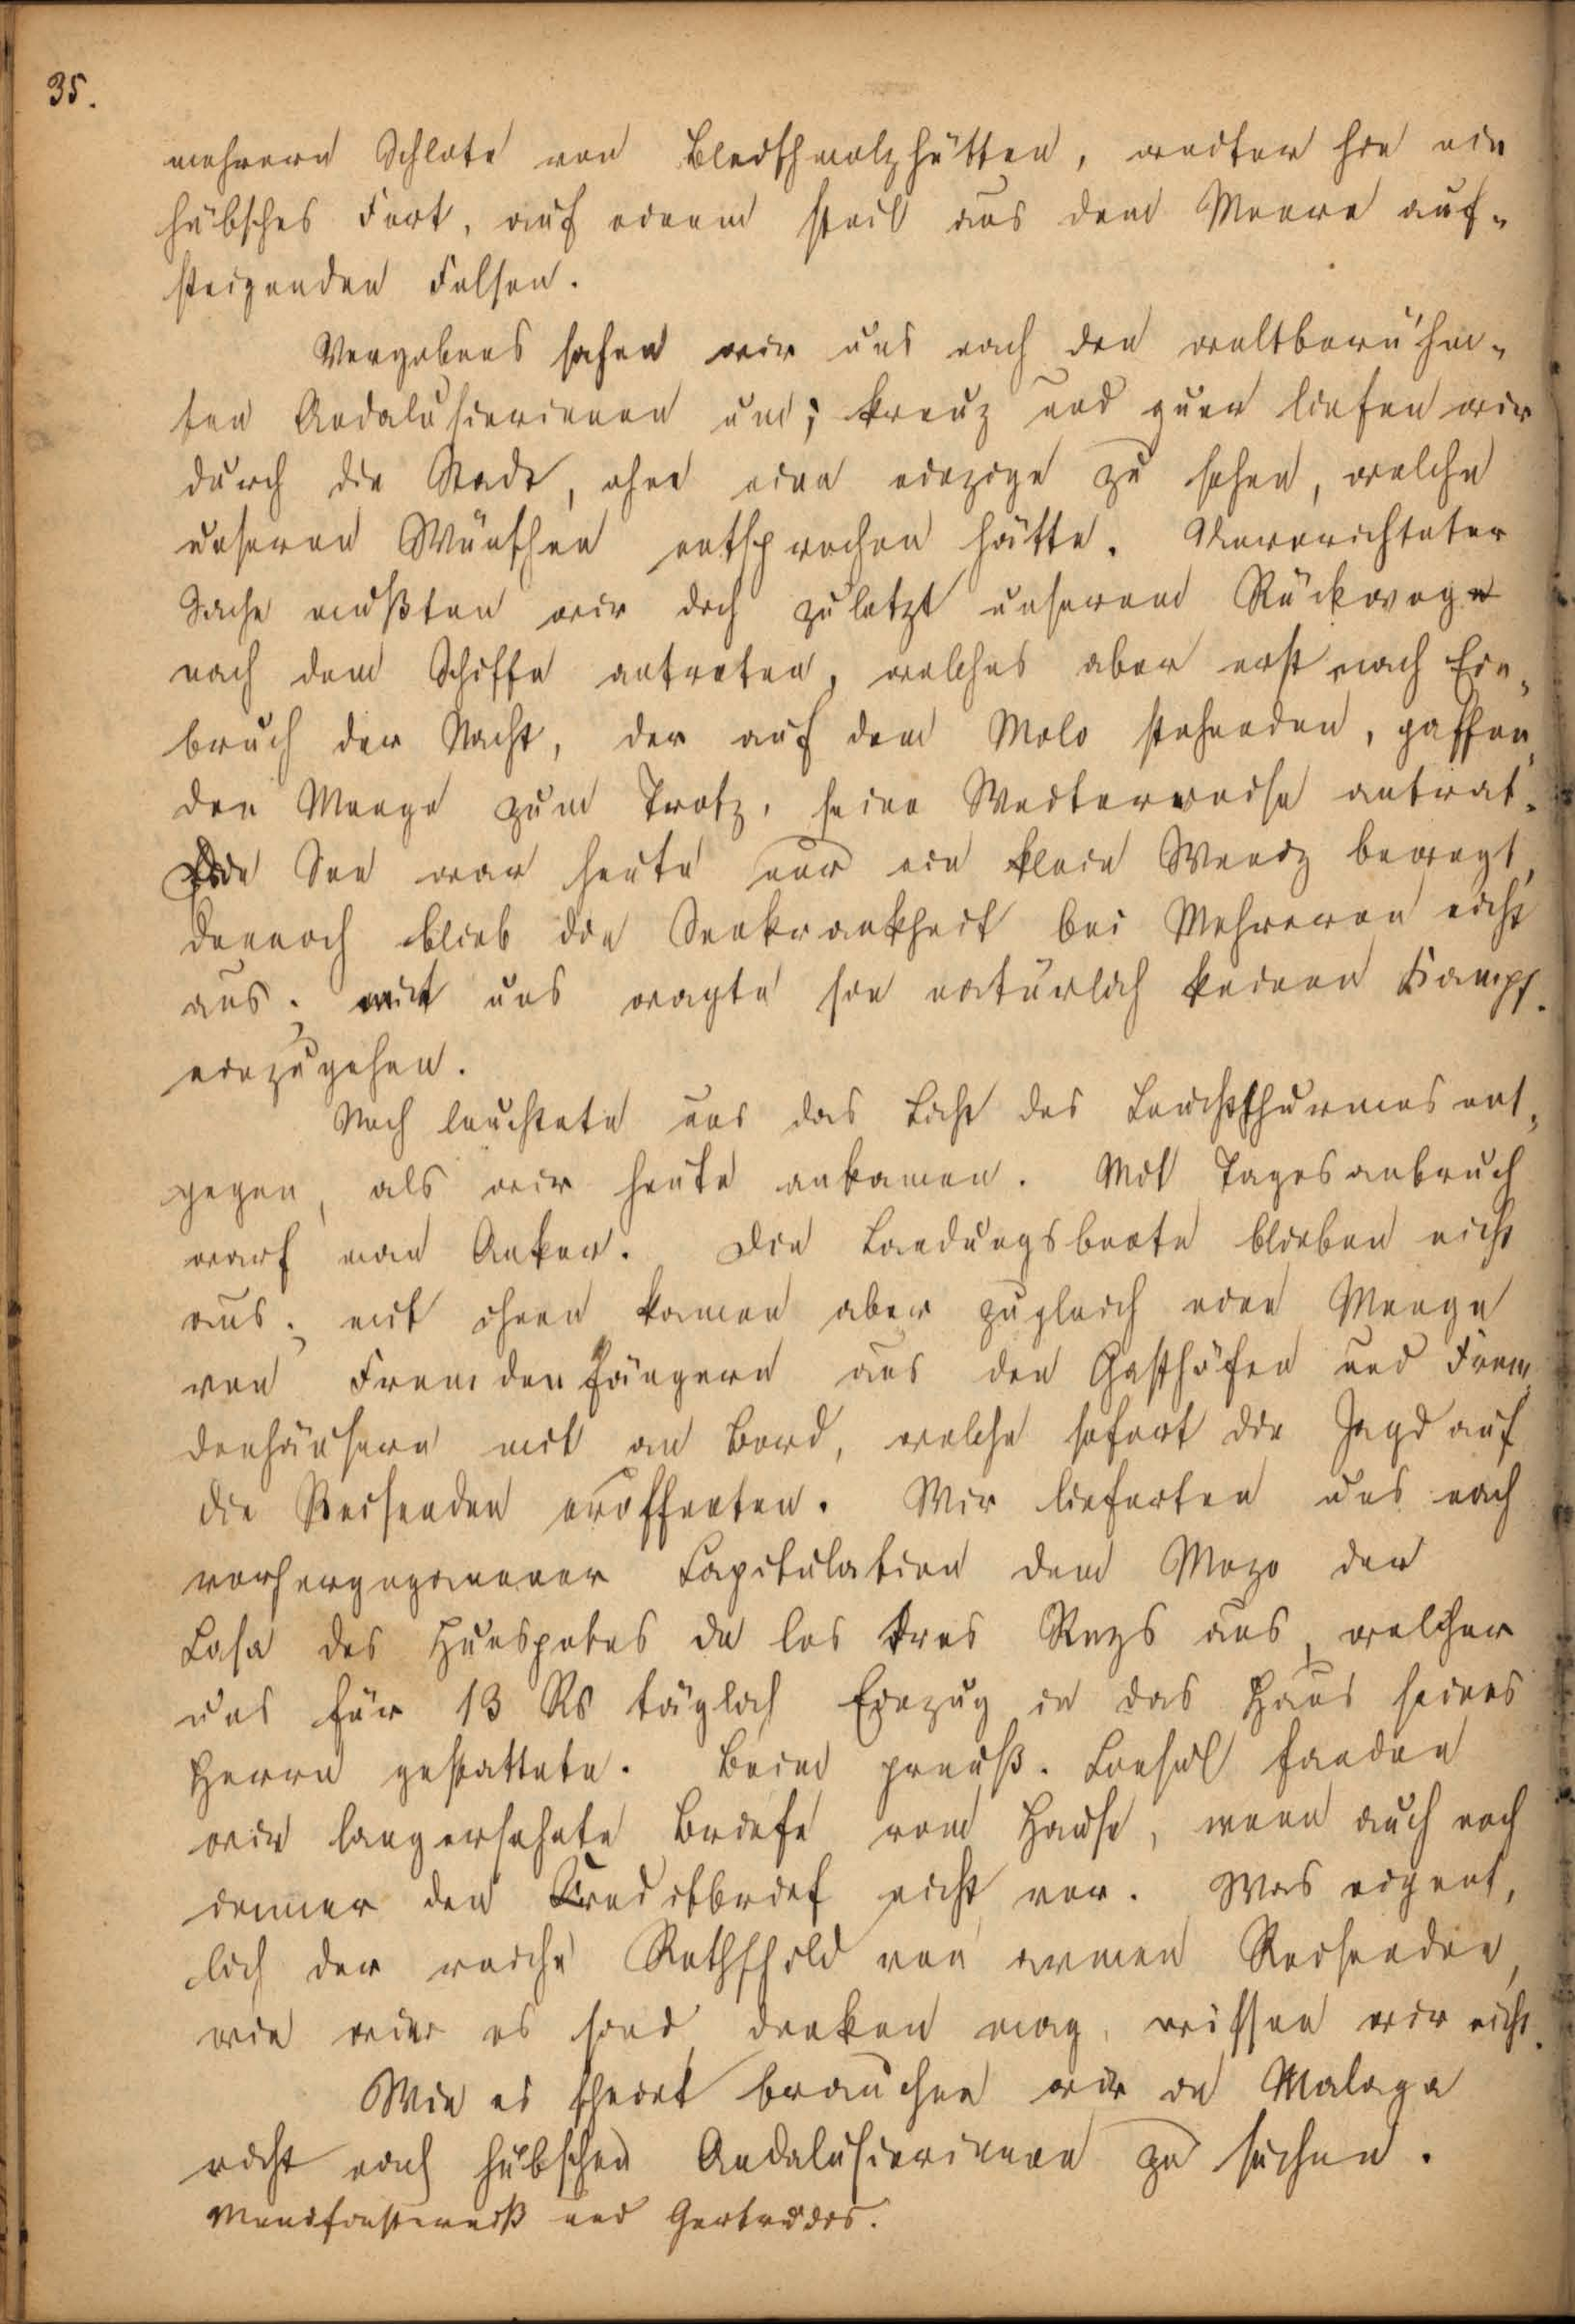 35.
mehrere Schlote von Bleischmelzhütten, weiter hin ein
hübsches Fort, auf einem steil aus dem Meere auf-
steigenden Felsen.
Vergebens sahen wir uns nach den weltberühm-
ten Andalusierinnen um; kreuz und quer liefen wir
durch die Stadt, ohne eine einzige zu sehen, welche
unseren Wünschen entsprochen hätte. Unverrichteter
Sache mußten wir doch zuletzt unseren Rückweg
nach dem Schiffe antreten, welches aber erst nach Ein-
bruch der Nacht, der auf dem Molo stehenden, gaffen-
den Menge zum Trotz, seine Weiterreise antrat.
Die See war heute nur ein klein Wenig bewegt,
dennoch blieb die Seekrankheit bei Mehreren nicht
aus; mit uns wagte sie natürlich keinen Kampf
einzugehen.
Noch leuchtete uns das Licht des Leuchtthurmes ent-
gegen, als wir heute ankamen. Mit Tagesanbruch
warf man Anker. Die Landungsboote blieben nicht
aus; mit ihnen kamen aber zugleich eine Menge
von Fremdenfängern aus den Gasthöfen und Frem-
denhäusern mit an Bord, welche sofort die Jagd auf
die Reisenden eröffneten. Wir lieferten uns nach
vorhergegangener Capitulation dem Mozo der
Casa des Huespedes de los tres Reys aus, welcher
uns für 13 Rs täglich Einzug in das Haus seines
Herrn gestattete. Beim preuß. Consul fanden
wir langersehnte Briefe vom Hause, wenn auch noch
immer den Creditbrief nicht vor. Was eigent-
lich der reiche Rothschild von armen Reisenden,
wie wir es sind, denken mag, wissen wir nicht.
Wie es scheint brauchen wir in Malaga
nicht nach hübschen Andalusierinnen zu suchen.
Mondfinsterniß und Gertrudes.